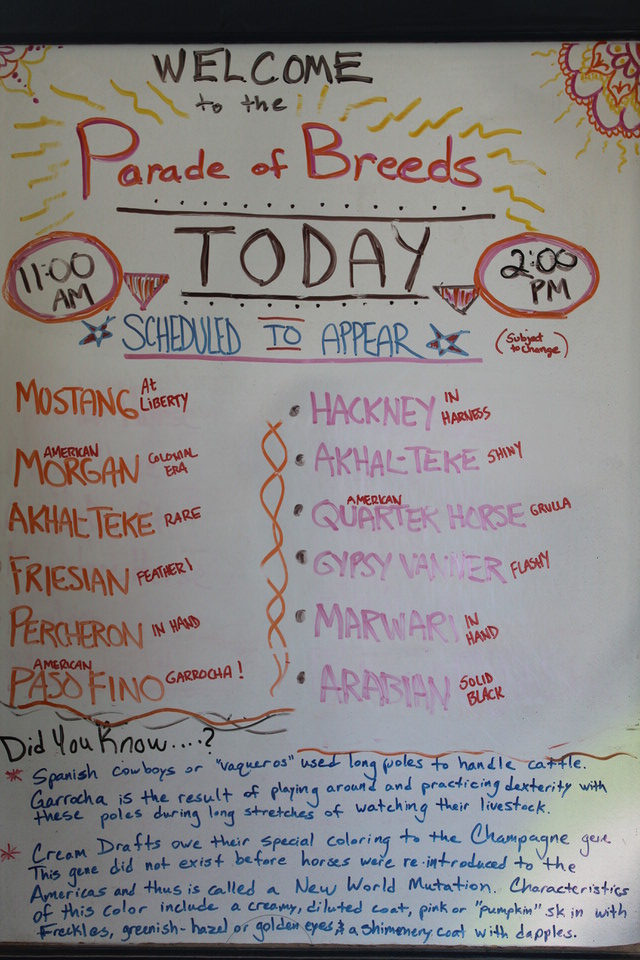 WELCOME
to the
Parade of Breeds
TODAY
11:00 AM
2:00 PM
SCHEDULED TO APPEAR
(Subject to Change)
MUSTANG At LIBERTY
AMERICAN MORGAN COLONIAL ERA
AKHAL-TEKE RARE
FRIESIAN FEATHER!
PERCHERON IN HAND
AMERICAN PASO FINO GARROCHA!
HACKNEY IN HARNESS
AKHAL-TEKE SHINY
AMERICAN QUARTER HORSE GRULLA
GYPSY VANNER FLASHY
MARWARI IN HAND
ARABIAN SOLID BLACK
Did You Know....?
* Spanish cowboys or "vaqueros" used long poles to handle cattle.
Garrocha is the result of playing around and practicing dexterity with
these poles during long stretches of watching their livestock.
* Cream Drafts owe their special coloring to the Champagne gene.
This gene did not exist before horses were re-introduced to the
Americas and thus is called a New World Mutation. Characteristics
of this color include a creamy, diluted coat, pink or "pumpkin" skin with
freckles, greenish-hazel or golden eyes & a shimmery coat with dapples.